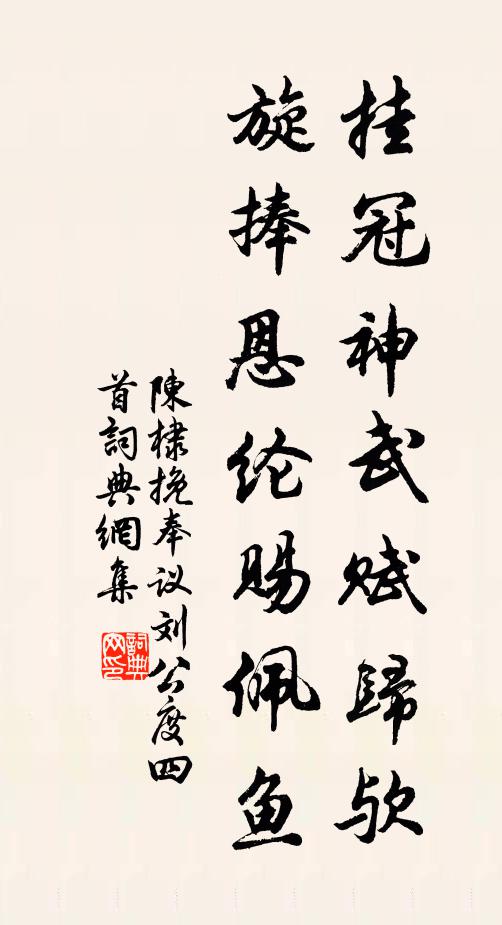 挂冠神武赋歸欤
旋捧恩纶赐佩鱼
陳棣挽奉议刘公度四
首詞典網集
詞典网印